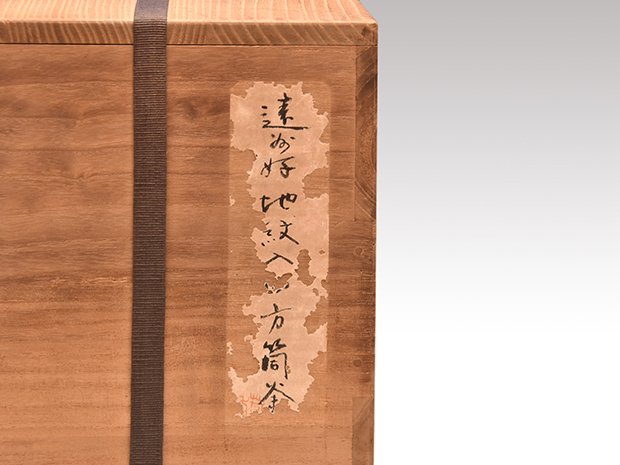 遠州好地紋入四方筒釜